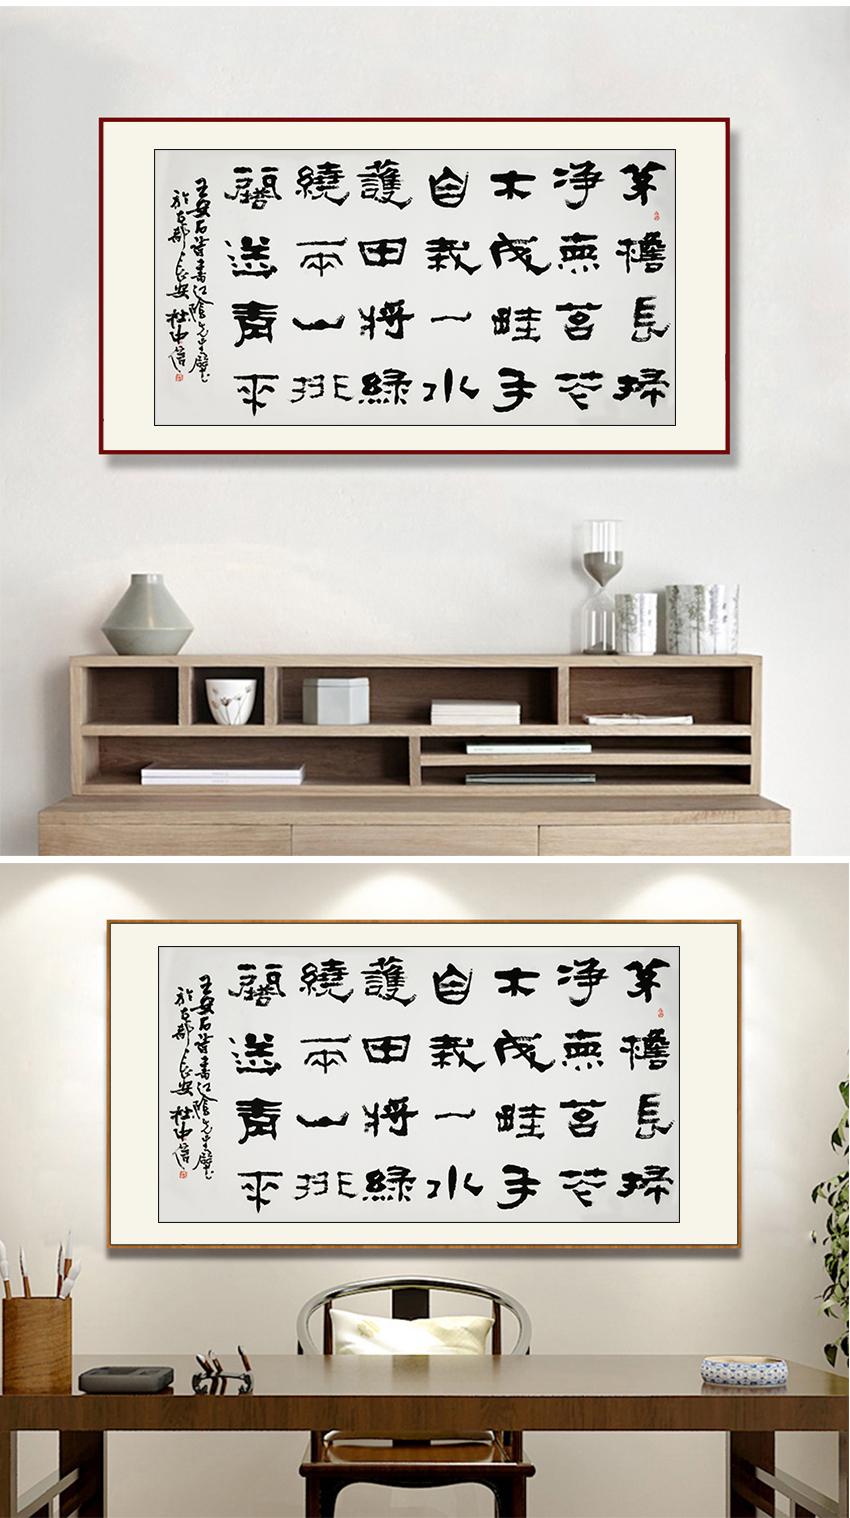 茅檐長掃
净無苔花
木成畦手
自栽一水
護田將綠
繞兩山排
闥送青來
王安石詩書江陰先生壁
於古都長安杜中信
茅檐長掃
净無苔花
木成畦手
自栽一水
護田將綠
繞兩山排
闥送青來
王安石詩書江陰先生壁
於古都長安杜中信